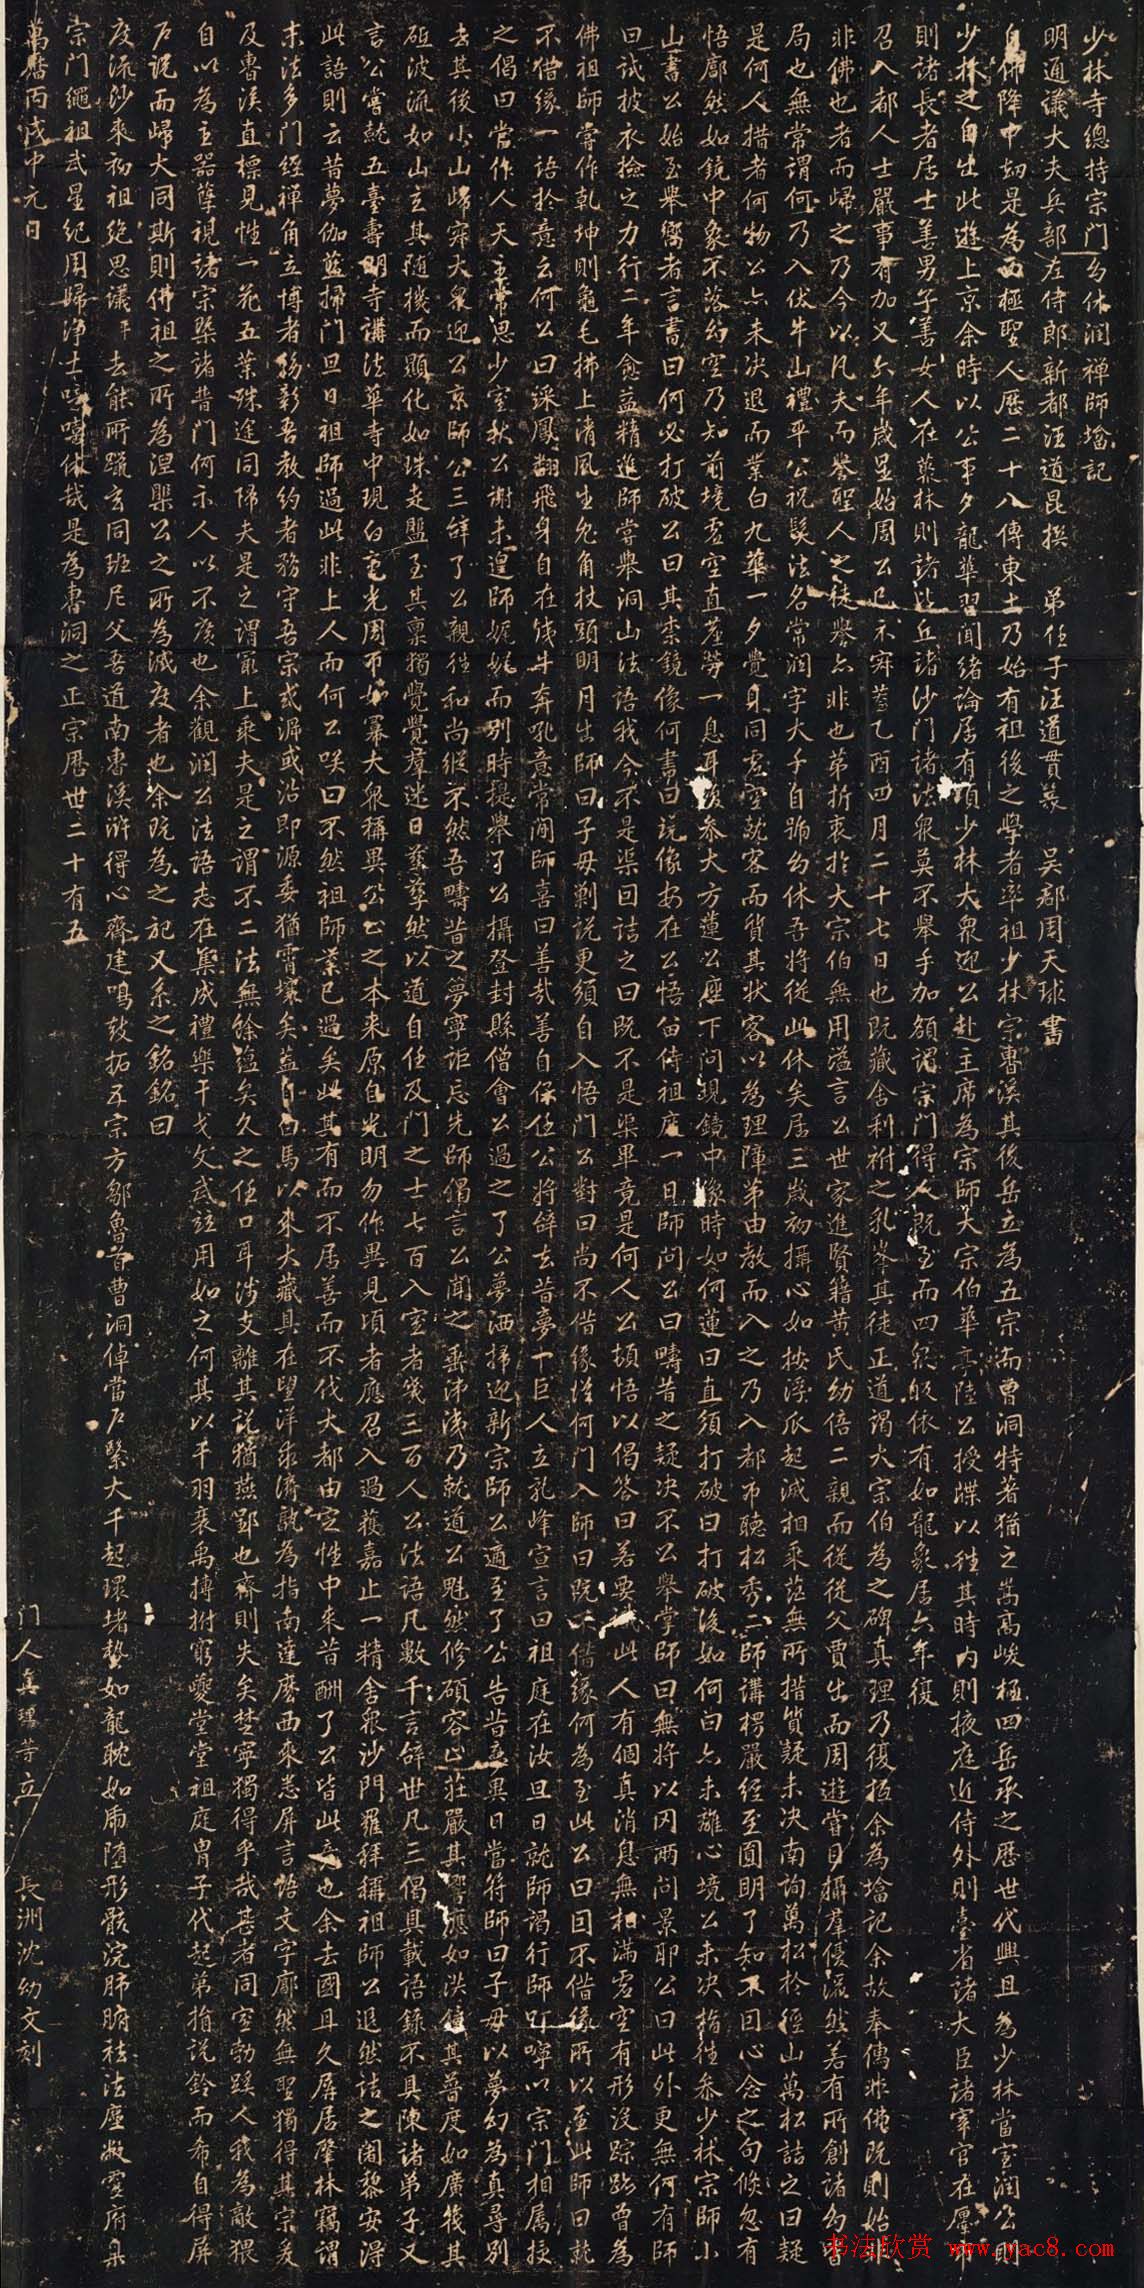 少林寺總持宗門幻休潤禅師墖記
明通議大夫兵部左侍郎新都汪道昆撰 弟任子汪道貫篆 吴郡周天球書
自佛降中刼是為西極聖人歷二十八傳東土乃始有祖後之學者率祖少林宗曹溪其後岳立為五宗而曹洞特著猶之嵩高峻極四岳承之歷世代興且為少林當室潤公則
少林之自出此遊上京余時以公事夕龍華習聞緒論居有頃少林大衆迎公赴主席為宗師大宗伯華亭陸公授牒以徃其時内則掖庭近侍外則臺省諸大臣諸宰官在郡
則諸長者居士善男子善女人在叢林則諸比丘諸沙門諸法衆莫不舉手加額謂宗門得人既至而四衆皈依有如龍象居六年復
召入都人士嚴事有加又六年歲星始周公已不寂葢乙酉四月二十七日也既藏舍利祔之乳峯其徒正道謁大宗伯為之碑真理乃復抵余為墖記余故奉傳非佛既則始
非佛也者而歸之乃今以凡夫而譽聖人之徒譽亦非也第折衷扵大宗伯無用溢言公世家進賢籍黄氏幼倍二親而從從父賈出而周遊當目攝羣優漚然若有所創諸
局也無常謂何乃入伏牛山禮平公祝髮法名常潤字大千自號幻休吾將從此休矣居三歲初攝心如按浮瓜起滅相乘茫無所措質疑未決南詢萬松扵徑山萬松詰之曰疑
是何人措者何物公亦未決退而業白九華一夕覺身同虗空就客而貨其狀客以為理障第由教而入之乃入都市聽松秀二師講楞嚴經至圓明了知不因心念之句倐忽有
悟廓然如鏡中象不落幻空乃知前境虗空直塵勞一息耳後参大方蓮公座下問現鏡中像時如何蓮曰直須打破曰打破後如何曰亦未離心境公未決指徃参少林宗師小
山書公始至舉嚮者言書曰何必打破公曰其柰鏡像何書曰説像安在公悟留侍祖庭一日師問公曰疇昔之疑決不公舉掌師曰無將以罔兩問景耶公曰此外更無何有師
曰試披衣撿之力行二年愈益精進師嘗舉洞山法語我今不是渠回詰之曰既不是渠畢竟是何人公頓悟以偈答曰若要識此人有個真消息無相滿虗空有形沒踪跡曾為
佛祖師嘗作乾坤則龜毛拂上清風生兎角杖頭明月出師曰子毋剿説更須自入悟門公對曰尚不借緣從何門入師曰既不借緣何為至此公曰因不借緣所以至此師曰就
不借緣一語扵意云何公曰深鳳翻飛身自在饑牛奔吼意常閒師喜曰善哉善自保任公將辭去昔夢一巨人立孔峰宣言曰祖庭在汝旦日就師謁行師叮嚀以宗門相属授
之偈曰當作人天主常思少室秋公謝未遑師娓娓而別時提舉了公攝登封縣僧會公過之了公夢洒掃迎新宗師公適至了公告昔夢異日當符師曰子毋以夢幻為真尋別
去其後小山歸寂大衆迎公京師公三辭了公親徃和尚縱不然吾疇昔之夢寧詎忘先師偈言公聞之垂涕洟乃就道公魁然修碩容止莊嚴其響應如洪鐘其普度如廣筏其
砥波流如山立其随機而顯化如珠走盤至其稟獨覺覺羣迷日孳孳然以道自任及門之士七百入室者幾三百人公法語凡數千言辭世凡三偈具載語錄不具陳諸弟子又
言公嘗就五臺壽明寺講法華寺中現白毫光周帀如幕大衆稱異公公之本来原自光明勿作異見頃者應召入過蓩嘉止一精舍衆沙門羅拜稱祖師公退然詰之闍黎安淂
此語則云昔夢伽藍掃門旦日祖師過此非上人而何公咲曰不然祖師業已過矣此其有而不居善而不伐大都由空性中來昔酬了公皆此意也余去國且久屏居肇林竊謂
末法多門經禅角立博者紛彰吾教約者務守吾宗或㴞或沿即源委猶霄壤矣葢自白馬以來大藏具在望洋求濟孰為指南達磨西來悉屏言詮文字廓然無聖獨得其宗爰
及曹溪直標見性一花五葉殊途同歸夫是之謂㝡上乘夫是之謂不二法無餘蘊矣久之任口耳涉支離其説猶燕郢也齊則失矣楚寧獨得乎哉甚者同室勃蹊人我為敵猥
自以為主器孽視諸宗槩諸普門何示人以不廣也余觀潤公法語志在集成禮樂干戈文武竝用如之何其以干羽裴禹搏拊窮夔堂堂祖庭胄子代起弟指説鈴而希自得屏
户説而歸大同斯則佛祖之所為涅槃公之所為滅度者也余既為之記又系之銘銘曰
度流沙來初祖絶思議去能所躐玄同班尼父吾道南曹溪滸得心齋建鳴鼓拓五宗方鄒魯首曹洞倬當户繄大千起環堵勢如龍眈如虎墮形骸浣肺腑祛法塵澂靈府臬
宗门繩祖武星紀用歸浄土嘻嘻休哉是為曹洞之正宗歷世二十有五
萬曆丙戌中元日
门人真理等立 長洲沈幼文刻
书法欣赏 www.yac8.com